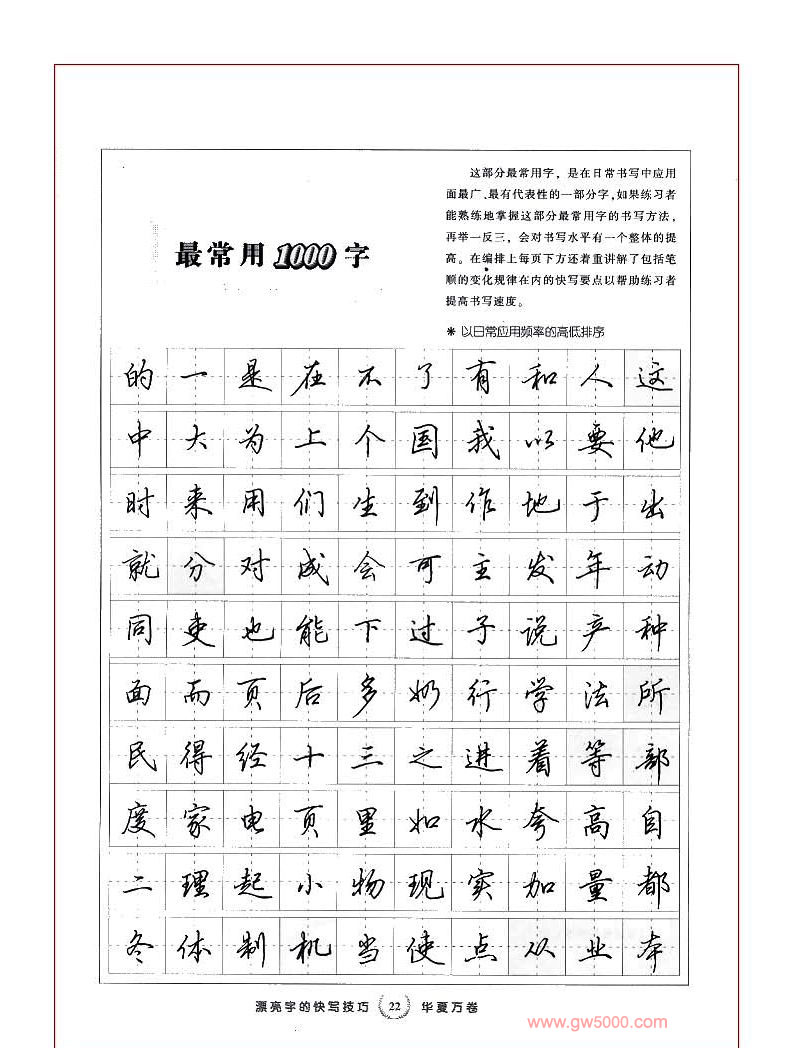 最常用1000字
这部分最常用字，是在日常书写中应用
面最广、最有代表性的一部分字，如果练习者
能熟练地掌握这部分最常用字的书写方法，
再举一反三，会对书写水平有一个整体的提
高。在编排上每页下方还着重讲解了包括笔
顺的变化规律在内的快写要点以帮助练习者
提高书写速度。
＊ 以日常应用频率的高低排序
的一是在不了有和人这
中大为上个国我以要他
时来用们生到作地于出
就分对成会可主发年动
同吏也能下过子说产种
面而页后多奶行学法所
民得经十三之进着等部
度家电页里如水夸高自
二理起小物现实加量都
冬体制机当使点从业本
漂亮字的快写技巧 22 华夏万卷
www.gw5000.com